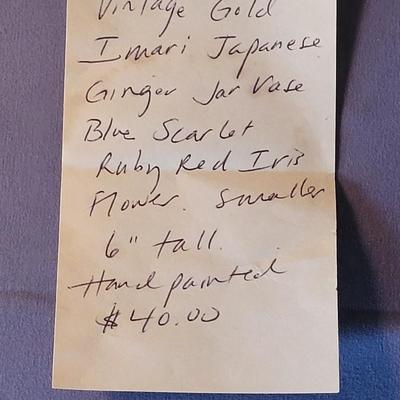 Vintage Gold
Imari Japanese
Ginger Jar Vase
Blue Scarlet
Ruby Red Iris
Flower. Smaller
6" tall.
Hand painted
$40.00